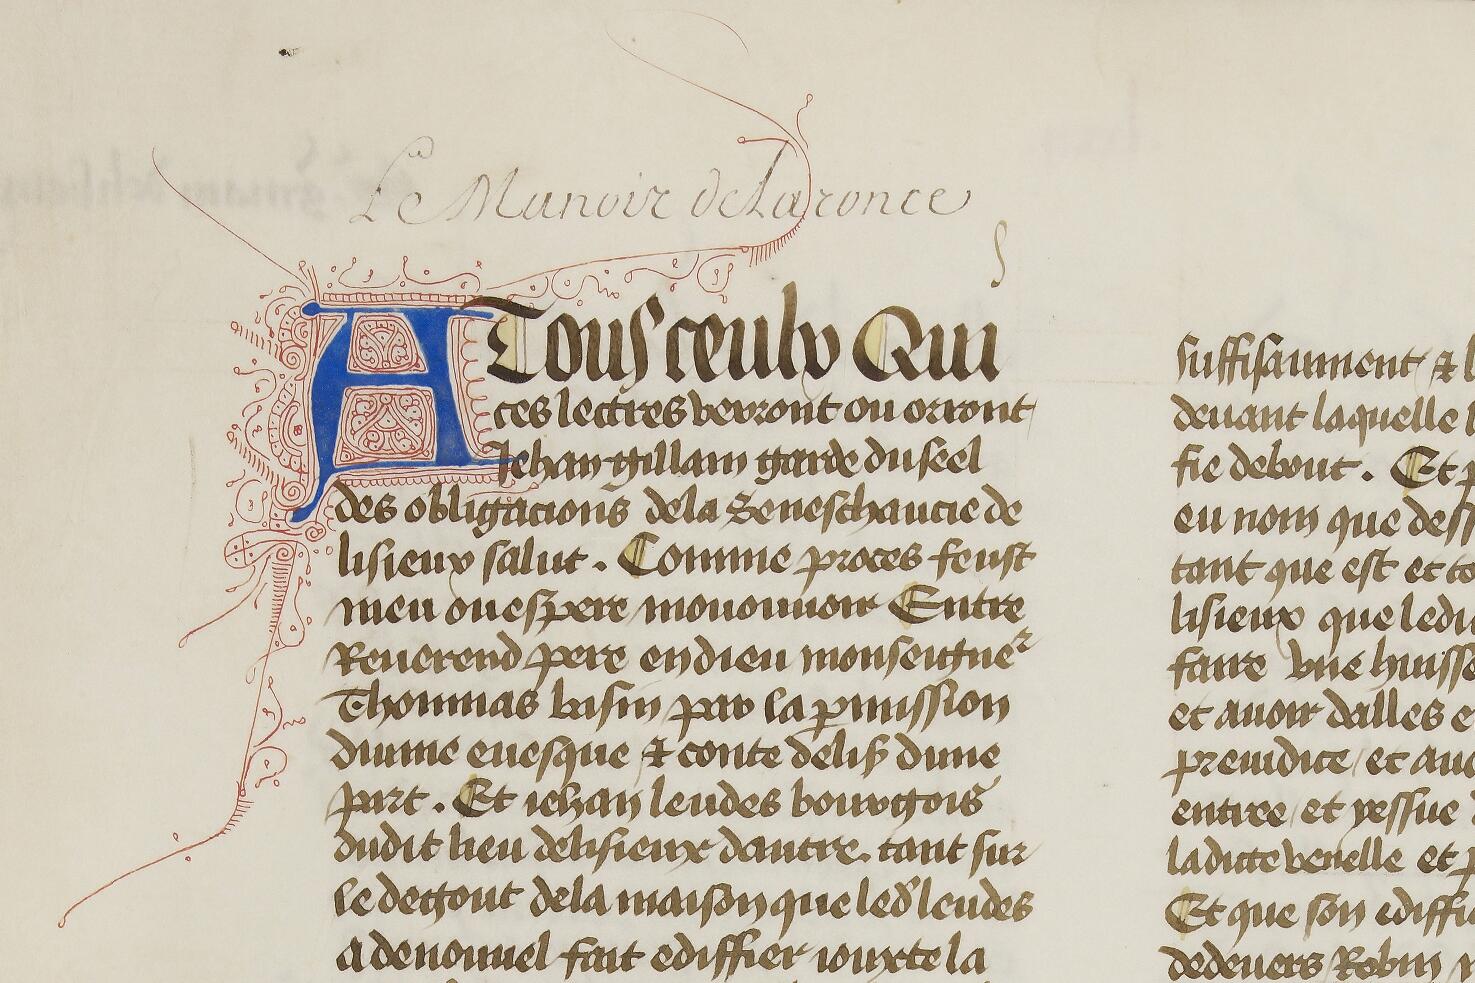 Le Manoir de la ronce
A Tous ceulx Qui
ces lectres verront ou orront
Jehan gillain garde du seel
des obligacions dela Seneschaucie de
lisieux salut. Comme proces feust
meu ou espere mouvoir Entre
Reuerend pere en dieu monseigneur
Thommas basin par la pmission
diuine euesque & conte de lisieux dune
part. Et iehan leudes bourgois
dudit lieu de lisieux dautre. tant sur
le degout dela maison que led leudes
a denouuel fait ediffier iouxte la
suffisaument & l
deuant laquelle
fie debout. Et p
eu nom que des
tant que est et co
lisieux que ledi
faire vne huisse
et auoir dalles e
preiudice et au
entree et yssue
ladicte venelle et p
Et que son ediffi
de deuers Robin